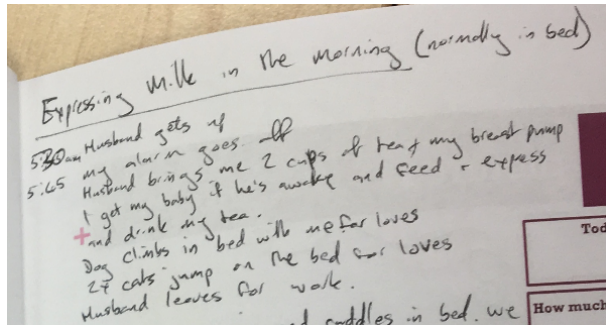 Expressing milk in the morning (normally in bed)
5:30am Husband gets up
my alarm goes off
5:45 Husband brings me 2 cups of tea + my breast pump
I get my baby if he's awake and feed + express
+ and drink my tea.
Dog climbs in bed with me for loves
2 cats jump on the bed for loves
Husband leaves for work.
cuddles in bed. we
Tod
How much